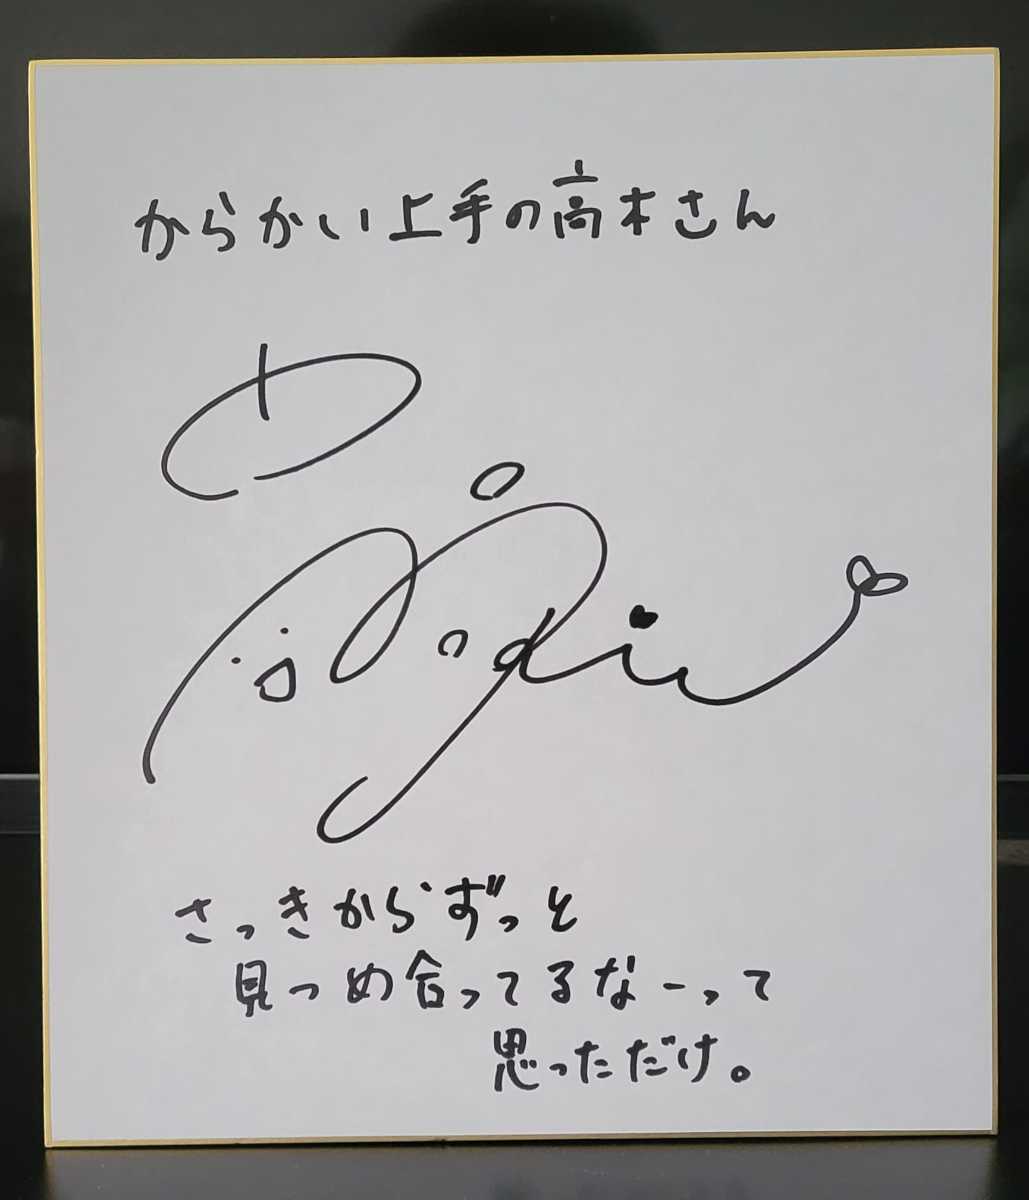 からかい上手の高木さん
さっきからずっと
見つめ合ってるなーって
思っただけ。